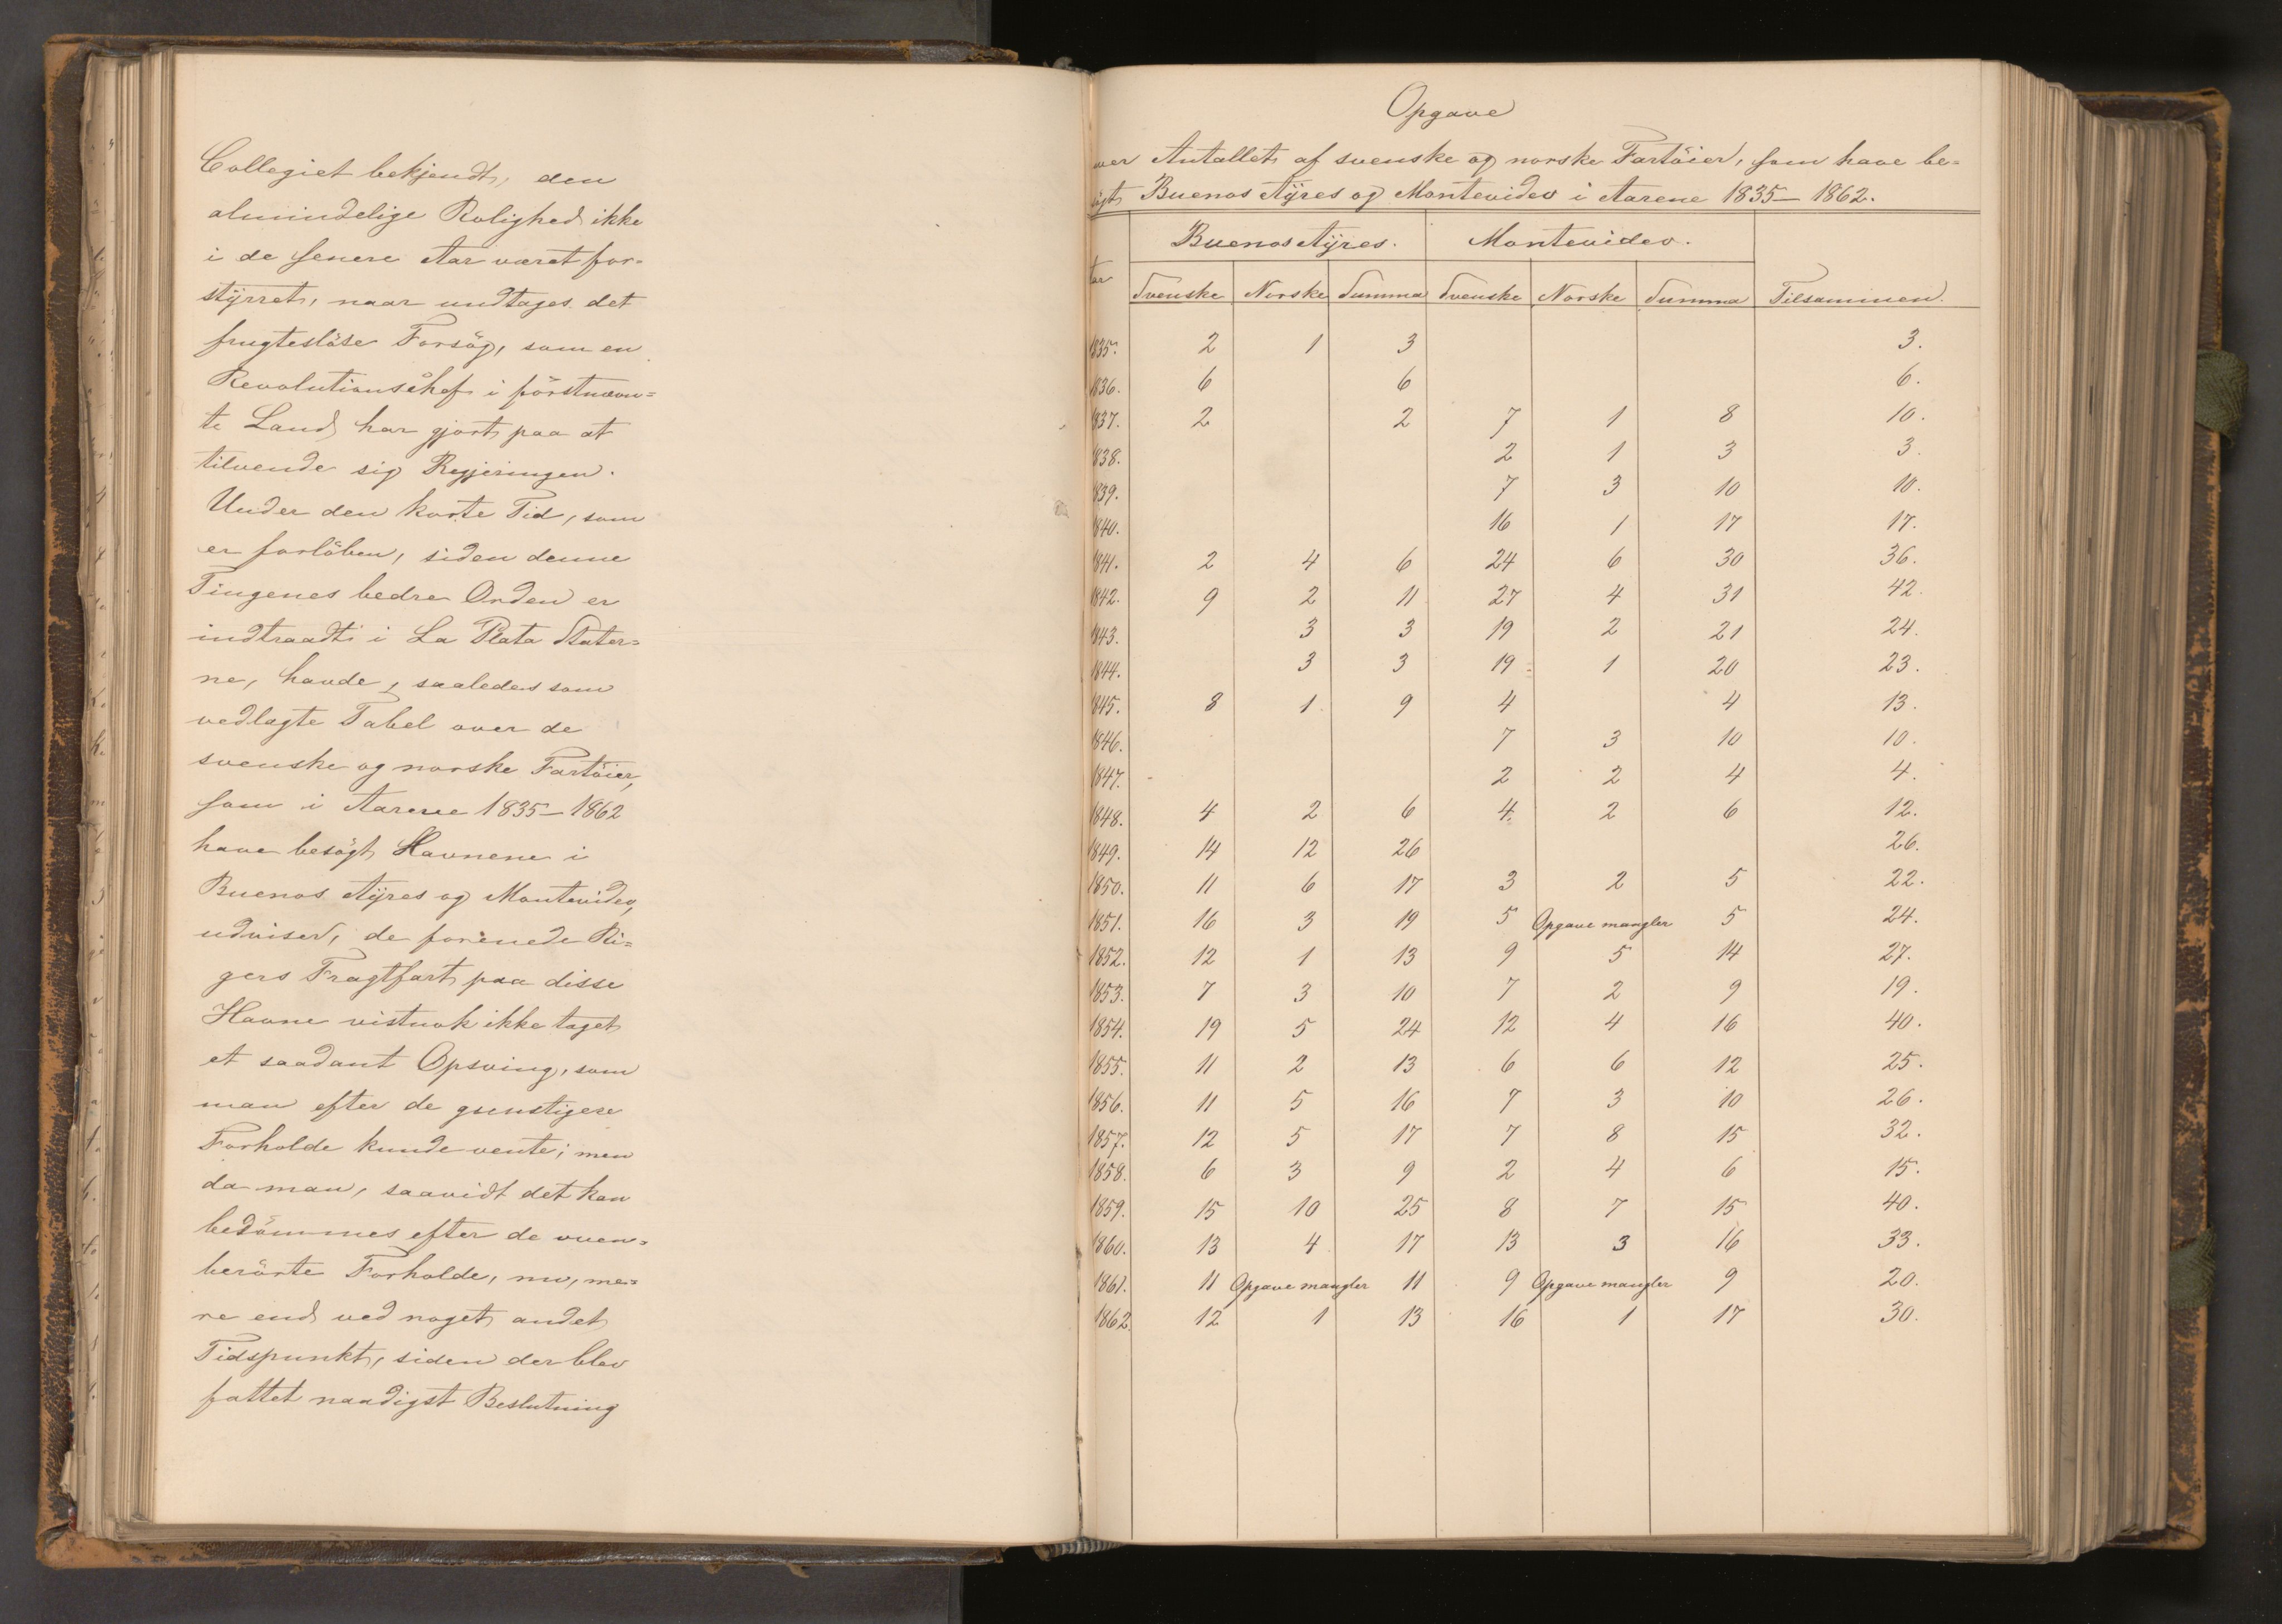 Collegiet bekjendt, den
almindelige Rolighed ikke
i de senere Aar været for=
styrret, naar undtages det
frugtesløse Forsøg, som en
Revolutionschef i førstnævn=
te Land har gjort paa at
tilvende sig Regjeringen.
Under den korte Tid, som
er forløben, siden denne
Tingenes bedre Orden er
indtraadt i La Plata Stater=
ne, havde, saaledes som
vedlagte Tabel over de
svenske og norske Fartöier,
som i Aarene 1835–1862
have besögt Havnene i
Buenos Ayres og Montevideo,
udviser, de forenede Ri=
gers Fragtfart paa disse
Havne vistnok ikke taget
et saadant Opsving, som
man efter de gunstigere
Forholde kunde vente; men
da man, saavidt det kan
bedömmes efter de oven=
berörte Forholde, nu, me=
re end ved noget andet
Tidspunkt, siden der blev
fattet naadigst Beslutning
Opgave
over Antallet af svenske og norske Fartöier, som have be=
sögt Buenos Ayres og Montevideo i Aarene 1835–1862.
Buenos Ayres. Montevideo.
Aar Svenske Norske Summa Svenske Norske Summa Tilsammen.
1835. 2 1 3 3.
1836. 6 6 6.
1837. 2 2 7 1 8 10.
1838. 2 1 3 3.
1839. 7 3 10 10.
1840. 16 1 17 17.
1841. 2 4 6 24 6 30 36.
1842. 9 2 11 27 4 31 42.
1843. 3 3 19 2 21 24.
1844. 3 3 19 1 20 23.
1845. 8 1 9 4 4 13.
1846. 7 3 10 10.
1847. 2 2 4 4.
1848. 4 2 6 4 2 6 12.
1849. 14 12 26 26.
1850. 11 6 17 3 2 5 22.
1851. 16 3 19 5 Opgave mangler 5 24.
1852. 12 1 13 9 5 14 27.
1853. 7 3 10 7 2 9 19.
1854. 19 5 24 12 4 16 40.
1855. 11 2 13 6 6 12 25.
1856. 11 5 16 7 3 10 26.
1857. 12 5 17 7 8 15 32.
1858. 6 3 9 2 4 6 15.
1859. 15 10 25 8 7 15 40.
1860. 13 4 17 13 3 16 33.
1861. 11 Opgave mangler 11 9 Opgave mangler 9 20.
1862. 12 1 13 16 1 17 30.